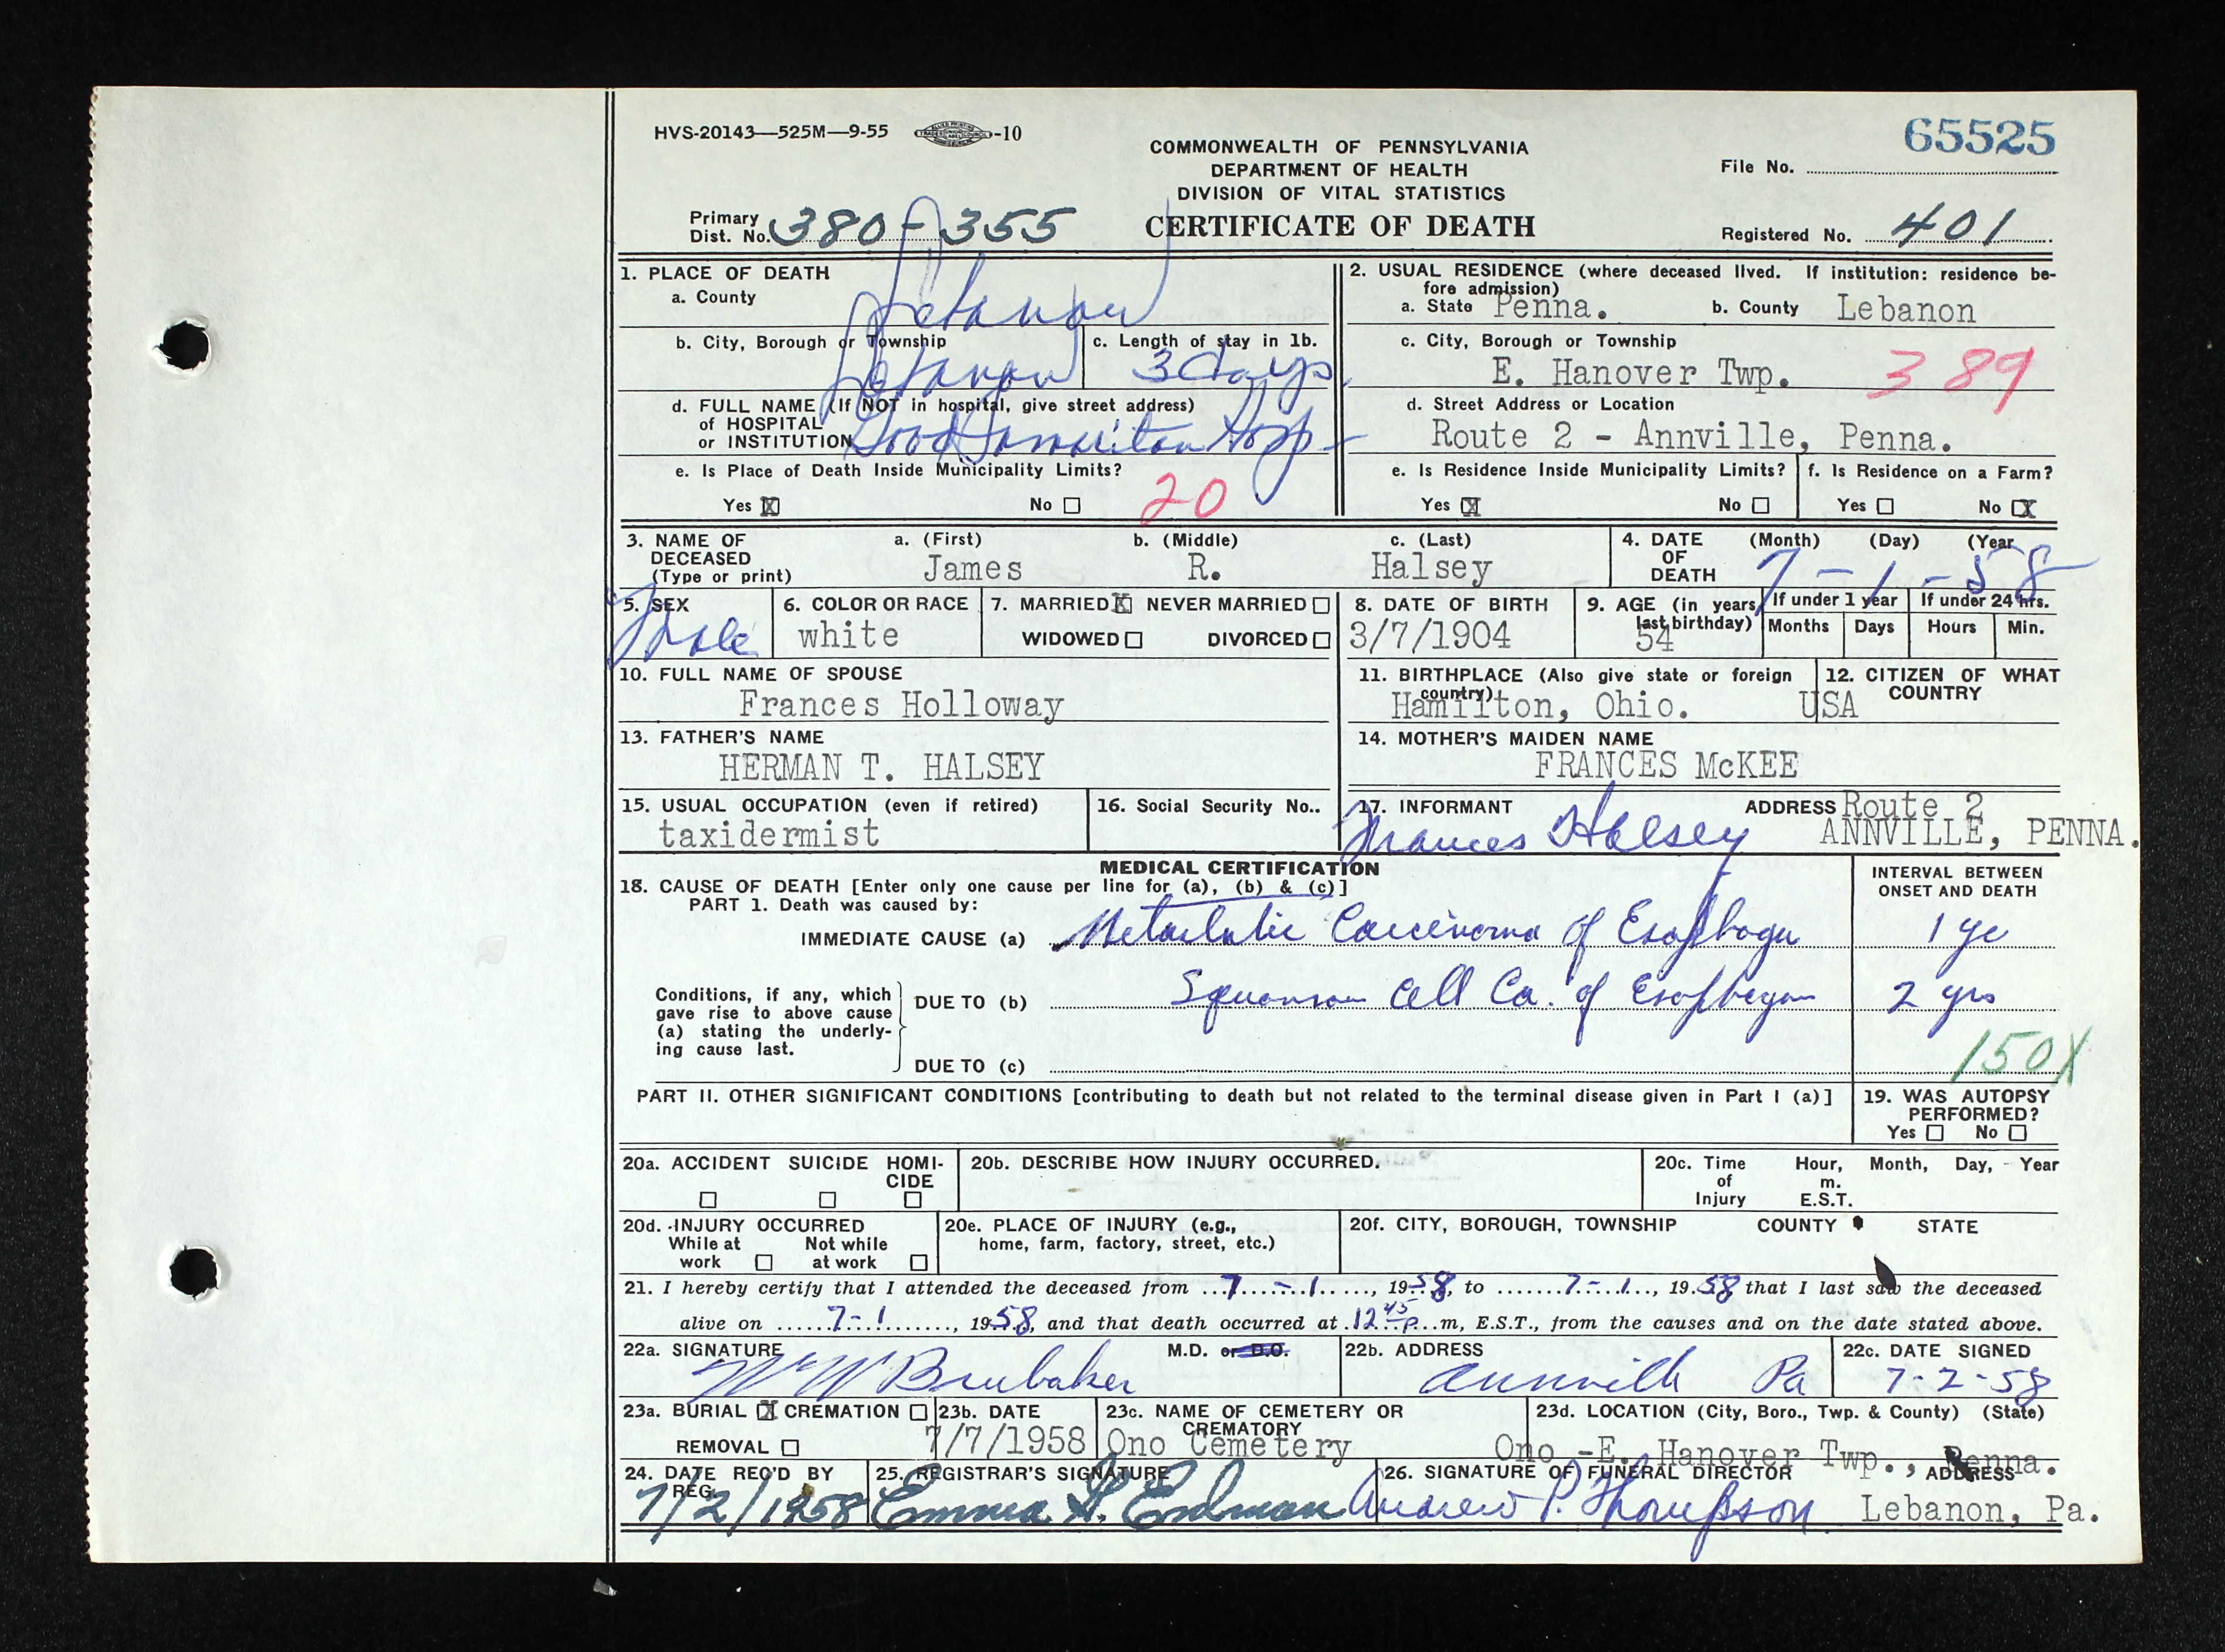 HVS-20143—525M—9-55 -10
65525
COMMONWEALTH OF PENNSYLVANIA
DEPARTMENT OF HEALTH
DIVISION OF VITAL STATISTICS
CERTIFICATE OF DEATH
File No.
Primary Dist. No. 380-355
Registered No. 401
1. PLACE OF DEATH
a. County Lebanon
b. City, Borough or Township Lebanon
c. Length of stay in 1b. 3 days
d. FULL NAME (If NOT in hospital, give street address)
of HOSPITAL
or INSTITUTION Good Samaritan Hosp
e. Is Place of Death Inside Municipality Limits?
Yes X No 20
2. USUAL RESIDENCE (where deceased lived. If institution: residence be-
fore admission)
a. State Penna. b. County Lebanon
c. City, Borough or Township
E. Hanover Twp. 389
d. Street Address or Location
Route 2 - Annville, Penna.
e. Is Residence Inside Municipality Limits? f. Is Residence on a Farm?
Yes X No Yes No X
3. NAME OF DECEASED (Type or print)
a. (First) b. (Middle) c. (Last)
James R. Halsey
4. DATE OF DEATH (Month) (Day) (Year
7 - 1 - 58
5. SEX Male
6. COLOR OR RACE white
7. MARRIED X NEVER MARRIED
WIDOWED DIVORCED
8. DATE OF BIRTH 3/7/1904
9. AGE (in years last birthday) 54
If under 1 year If under 24 hrs.
Months Days Hours Min.
10. FULL NAME OF SPOUSE
Frances Holloway
11. BIRTHPLACE (Also give state or foreign country)
Hamilton, Ohio.
12. CITIZEN OF WHAT COUNTRY
USA
13. FATHER'S NAME
HERMAN T. HALSEY
14. MOTHER'S MAIDEN NAME
FRANCES McKEE
15. USUAL OCCUPATION (even if retired)
taxidermist
16. Social Security No..
17. INFORMANT Frances Halsey
ADDRESS Route 2
ANNVILLE, PENNA.
MEDICAL CERTIFICATION
18. CAUSE OF DEATH [Enter only one cause per line for (a), (b) & (c)]
PART 1. Death was caused by:
INTERVAL BETWEEN
ONSET AND DEATH
IMMEDIATE CAUSE (a) Metastatic Carcinoma of Esophagus 1 yr
Conditions, if any, which
gave rise to above cause
(a) stating the underly-
ing cause last.
DUE TO (b) Squamous Cell Ca. of Esophagus 2 yrs
DUE TO (c)
150X
PART II. OTHER SIGNIFICANT CONDITIONS [contributing to death but not related to the terminal disease given in Part I (a)]
19. WAS AUTOPSY
PERFORMED?
Yes No
20a. ACCIDENT SUICIDE HOMI-
CIDE
20b. DESCRIBE HOW INJURY OCCURRED.
20c. Time of Injury Hour, Month, Day, Year
m.
E.S.T.
20d. INJURY OCCURRED
While at work Not while at work
20e. PLACE OF INJURY (e.g.,
home, farm, factory, street, etc.)
20f. CITY, BOROUGH, TOWNSHIP COUNTY STATE
21. I hereby certify that I attended the deceased from 7 - 1, 1958, to 7-1, 1958 that I last saw the deceased
alive on 7-1, 1958, and that death occurred at 12 45 P.m, E.S.T., from the causes and on the date stated above.
22a. SIGNATURE W W Brubaker M.D. or D.O.
22b. ADDRESS Annville Pa
22c. DATE SIGNED 7-2-58
23a. BURIAL X CREMATION
REMOVAL
23b. DATE 7/7/1958
23c. NAME OF CEMETERY OR CREMATORY
Ono Cemetery
23d. LOCATION (City, Boro., Twp. & County) (State)
Ono -E. Hanover Twp., Penna.
24. DATE REC'D BY REG. 7/2/1958
25. REGISTRAR'S SIGNATURE Emma H. Erdman
26. SIGNATURE OF FUNERAL DIRECTOR Andrew P. Thompson
ADDRESS Lebanon, Pa.